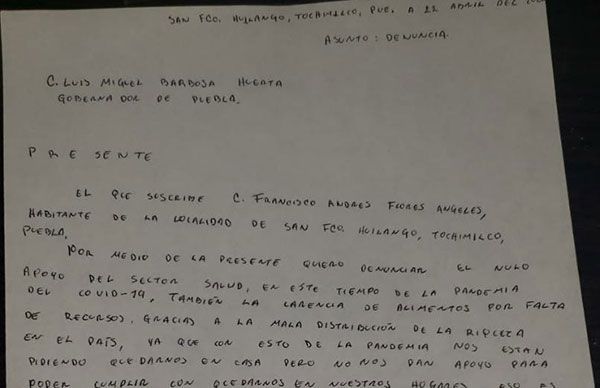 SAN FCO. HUILANGO, TOCHIMILCO, PUE. A 22 ABRIL DEL
ASUNTO: DENUNCIA.
C. LUIS MIGUEL BARBOSA HUERTA
GOBERNADOR DE PUEBLA.
PRESENTE
EL QUE SUSCRIBE C. FRANCISCO ANDRES FLORES ANGELES,
HABITANTE DE LA LOCALIDAD DE SAN FCO. HUILANGO, TOCHIMILCO,
PUEBLA.
POR MEDIO DE LA PRESENTE QUIERO DENUNCIAR EL NULO
APOYO DEL SECTOR SALUD, EN ESTE TIEMPO DE LA PANDEMIA
DEL COVID-19, TAMBIÉN LA CARENCIA DE ALIMENTOS POR FALTA
DE RECURSOS. GRACIAS A LA MALA DISTRIBUCIÓN DE LA RIQUEZA
EN EL PAÍS, YA QUE CON ESTO DE LA PANDEMIA NOS ESTAN
PIDIENDO QUEDARNOS EN CASA PERO NO NOS DAN APOYO PARA
PODER CUMPLIR CON QUEDARNOS EN NUESTROS HOGARES ESO